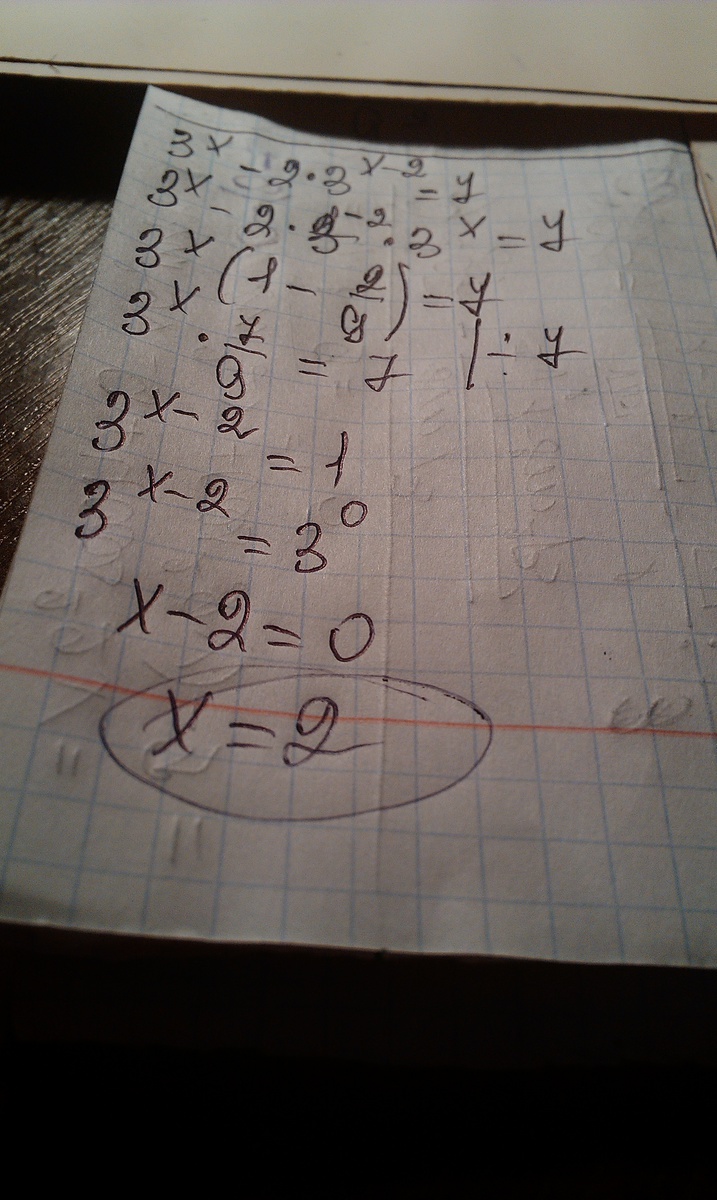 3^x
3^x - 2·3^(x-2) = 7
3^x - 2·3^(-2)·3^x = 7
3^x (1 - 2/9) = 7
3^x · 7/9 = 7 | ÷ 7
3^(x-2) = 1
3^(x-2) = 3^0
x-2=0
x=2